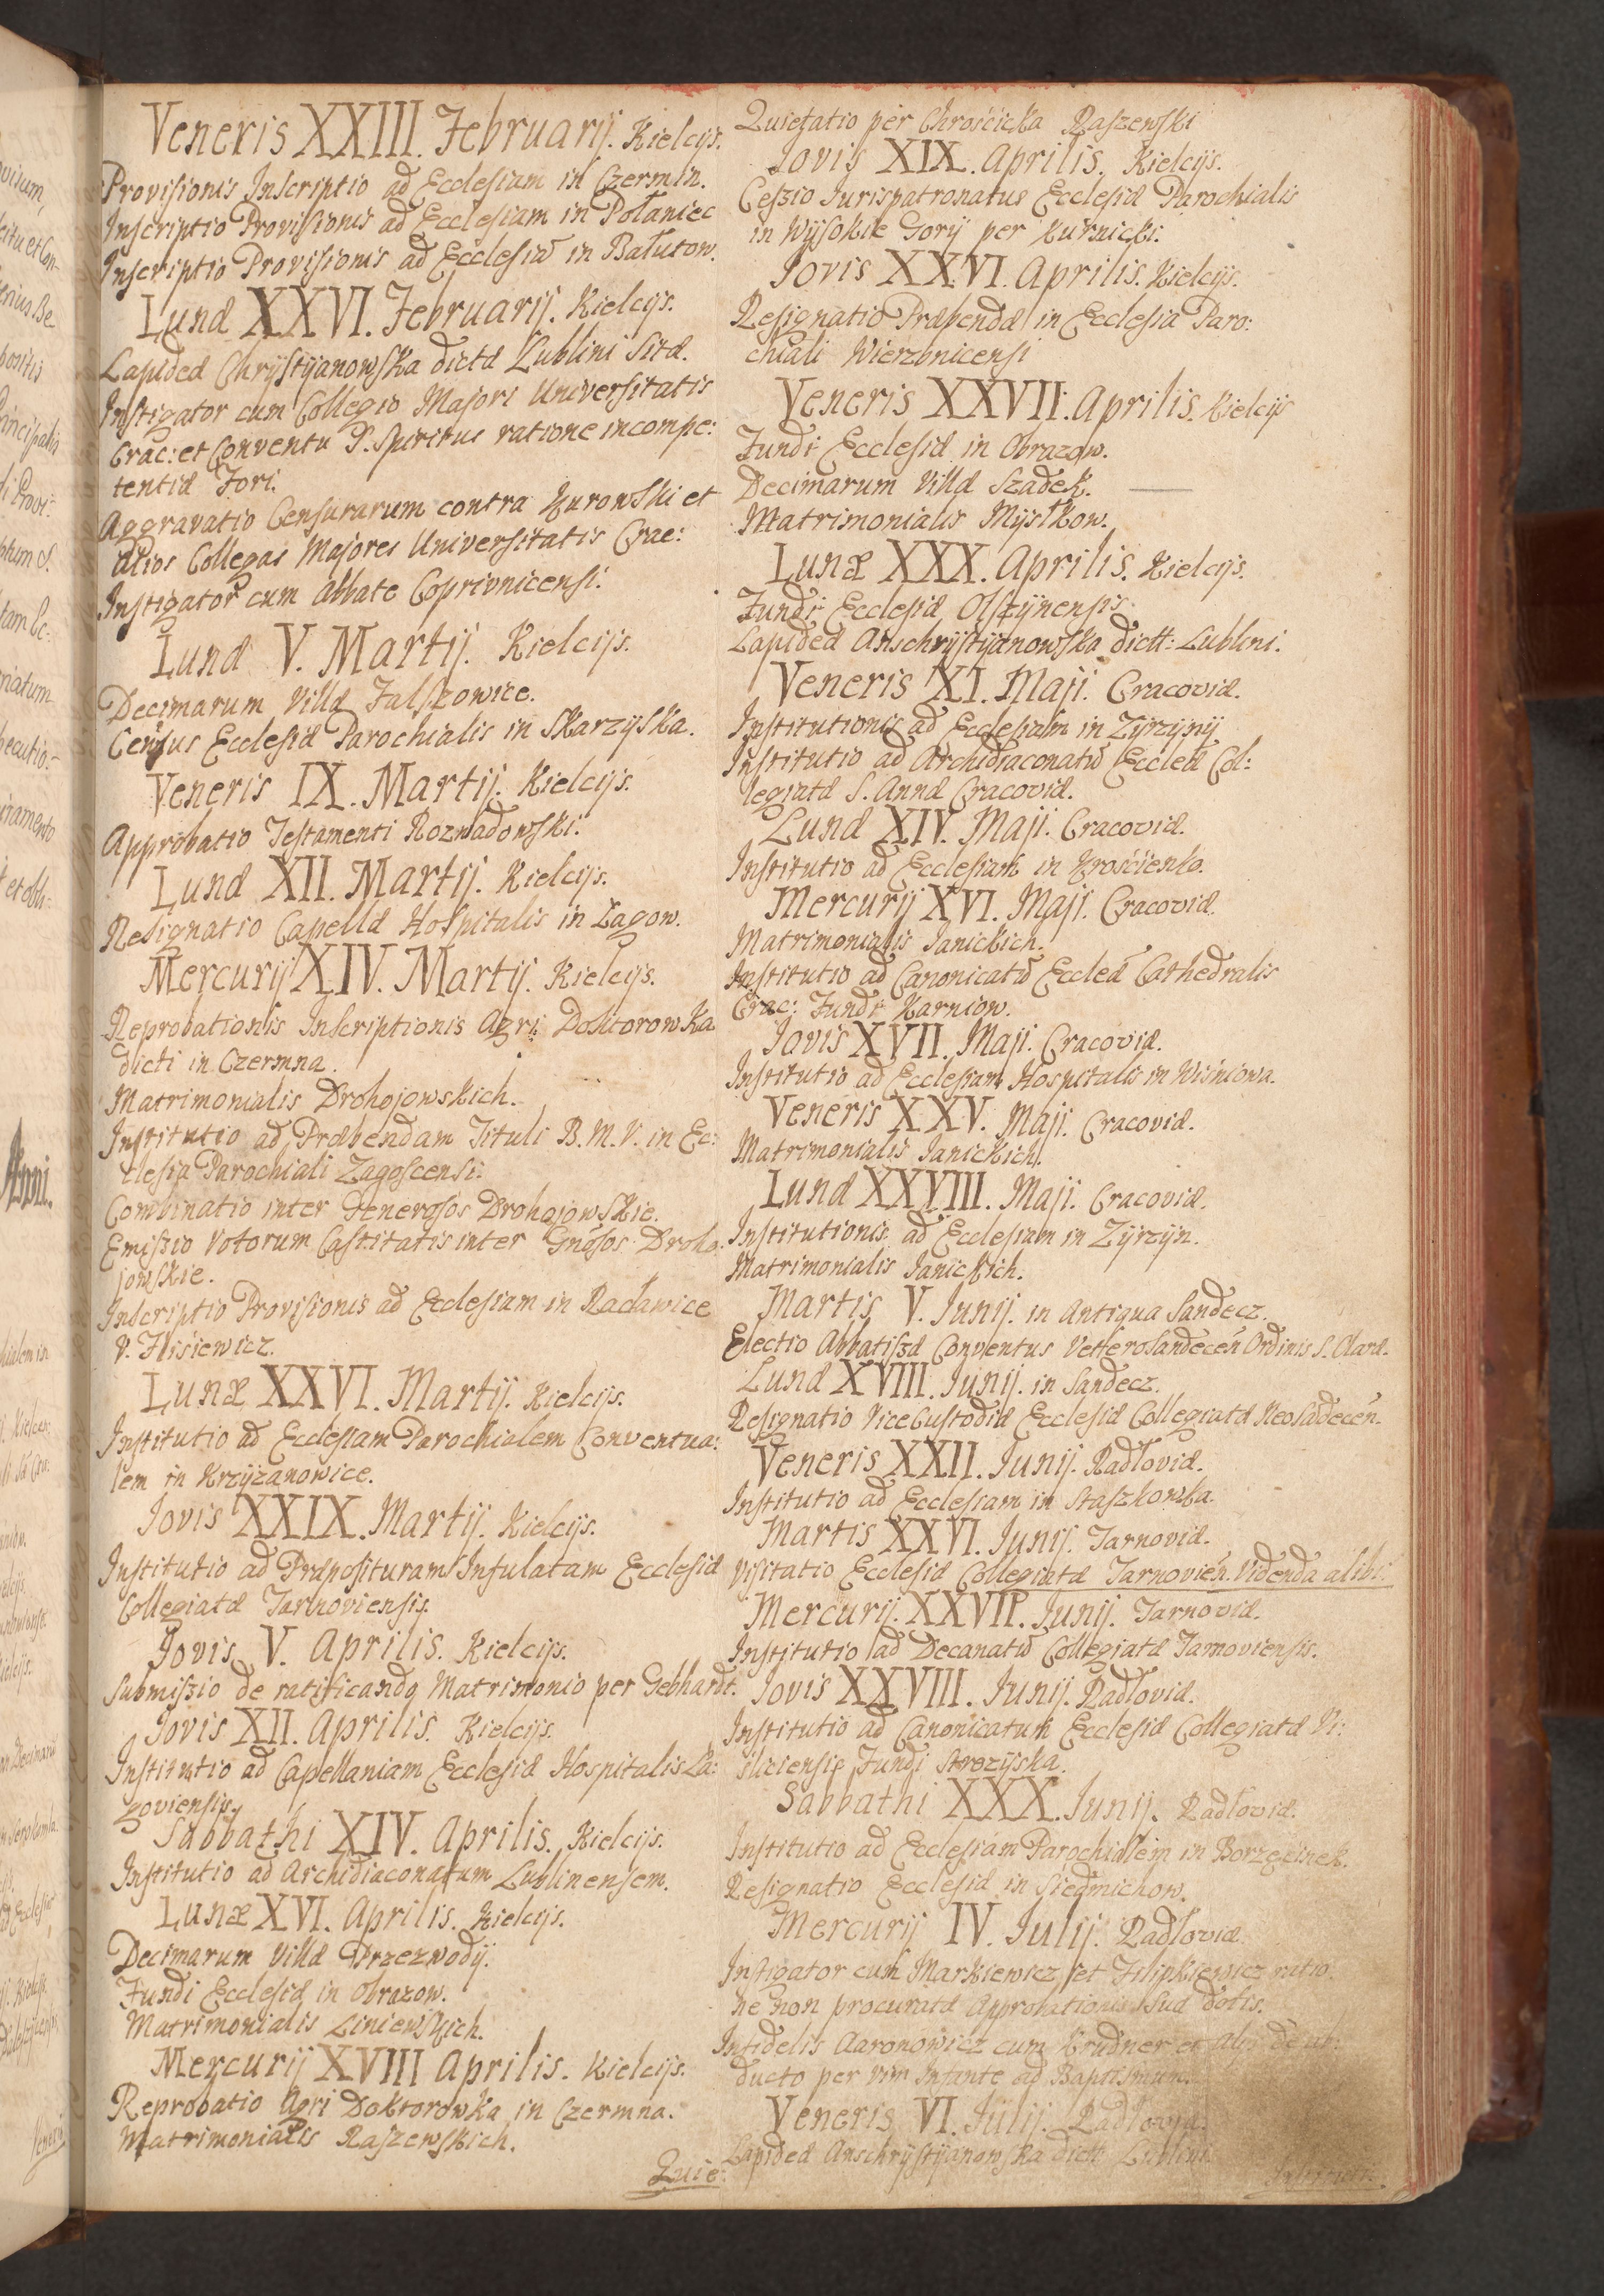 Veneris XXIII. Februarij. Kielcijs.
Provisionis Inscriptio ad Ecclesiam in Czermin.
Inscriptio Provisionis ad Ecclesiam in Połaniec
Inscriptio Provisionis ad Ecclesiã in Bałutow.
Lunæ XXVI. Februarij. Kielcijs.
Lapideæ Chrystyanowska dictæ Lublini sitæ.
Instigator cum Collegio Majori Universitatis
Crac: et Conventu S. Spiritus ratione incompe:
tentiæ Fori.
Aggravatio Censurarum contra Żurowski et
alios Collegas Majores Universitatis Crac:
Instigator cum Abbate Coprivnicensi.
Lunæ V. Martij. Kielcijs.
Decimarum Villæ Falszowice.
Census Ecclesiæ Parochialis in Skarzyska.
Veneris IX. Martij. Kielcijs.
Approbatio Testamenti Rozwadowski.
Lunæ XII. Martij. Kielcijs.
Resignatio Capellæ Hospitalis in Łagow.
Mercurij XIV. Martij. Kielcijs.
Reprobationis Inscriptionis Agri Doktorowka
dicti in Czermna.
Matrimonialis Drohojowskich.
Institutio ad Præbendam Tituli B. M. V. in Ec:
clesia Parochiali Zagoscensi.
Combinatio inter Generosos Drohojowskie.
Emissio Votorum Castitatis inter Gñosos Droho:
jowskie.
Inscriptio Provisionis ad Ecclesiam in Racławice
V. Flisiewicz.
Lunæ XXVI. Martij. Kielcijs.
Institutio ad Ecclesiam Parochialem Conventua:
lem in Krzyżanowice.
Jovis XXIX. Martij. Kielcijs.
Institutio ad Præposituram Infulatam Ecclesiæ
Collegiatæ Tarnoviensis.
Jovis V. Aprilis. Kielcijs.
Submissio de ratificando Matrimonio per Gebhardt.
Jovis XII. Aprilis. Kielcijs.
Institutio ad Capellaniam Ecclesiæ Hospitalis Ła:
goviensis.
Sabbathi XIV. Aprilis. Kielcijs.
Institutio ad Archidiaconatum Lublinensem.
Lunæ XVI. Aprilis. Kielcijs.
Decimarum Villæ Przezwody.
Fundi Ecclesiæ in Obrazow.
Matrimonialis Liniewskich.
Mercurij XVIII Aprilis. Kielcijs.
Reprobatio Agri Doktorowka in Czermna.
Matrimonialis Raszewskich.
Quie:
Quietatio per Chrościcka Raszewski
Jovis XIX. Aprilis. Kielcijs.
Cessio Jurispatronatus Ecclesiæ Parochialis
in Wysokie Gory per Kurnicki.
Jovis XXVI. Aprilis. Kielcijs.
Resignatio Præbendæ in Ecclesia Paro:
chiali Wierzbnicensi
Veneris XXVII. Aprilis. Kielcijs
Fundi Ecclesiæ in Obrazow.
Decimarum Villæ Szadek.
Matrimonialis Mystkow.
Lunæ XXX. Aprilis. Kielcijs.
Fundi Ecclesiæ Olsztynensis.
Lapideæ Anschrystyanowska dict: Lublini.
Veneris XI. Maji. Cracoviæ.
Institutionis ad Ecclesiam in Zyrzyny
Institutio ad Archidiaconatũ Eccleæ Col:
legiatæ S. Annæ Cracoviæ.
Lunæ XIV. Maji. Cracoviæ.
Institutio ad Ecclesiam in Krościenko.
Mercurij XVI. Maji. Cracoviæ.
Matrimonialis Janickich.
Institutio ad Canonicatũ Eccleæ Cathedralis
Crac: Fundi Karniow.
Jovis XVII. Maji. Cracoviæ.
Institutio ad Ecclesiam Hospitalis in Wiśniowa.
Veneris XXV. Maji. Cracoviæ.
Matrimonialis Janickich.
Lunæ XXVIII. Maji. Cracoviæ.
Institutionis ad Ecclesiam in Zyrzyn.
Matrimonialis Janickich.
Martis V. Junij. in Antiqua Sandecz.
Electio Abbatissæ Conventus Vetterosandecen Ordinis S. Claræ.
Lunæ XVIII. Junij. in Sandecz.
Resignatio ViceCustodiæ Ecclesiæ Collegiatæ Neosadecen.
Veneris XXII. Junij. Radłoviæ.
Institutio ad Ecclesiam in Staszkowka.
Martis XXVI. Junij. Tarnoviæ.
Visitatio Ecclesiæ Collegiatæ Tarnovien. Videnda alibi.
Mercurij. XXVII. Junij. Tarnoviæ.
Institutio ad Decanatũ Collegiatæ Tarnoviensis.
Jovis XXVIII. Junij. Radłoviæ.
Institutio ad Canonicatum Ecclesiæ Collegiatæ Vi:
sliciensis Fundi Strozyska.
Sabbathi XXX. Junij. Radłoviæ.
Institutio ad Ecclesiam Parochialem in Borzęcinek.
Resignatio Ecclesiæ in Siedmichow.
Mercurij IV. Julij. Radłoviæ.
Instigator cum Markiewicz et Filipkiewicz ratio:
ne non procuratæ Approbationis suæ dotis.
Infidelis Aaronowicz cum Krudner et de ab:
ducto per vim Infante ad Baptismum.
Veneris VI. Julij. Radłoviæ.
Lapideæ Anschrystyanowska dict Lublini.